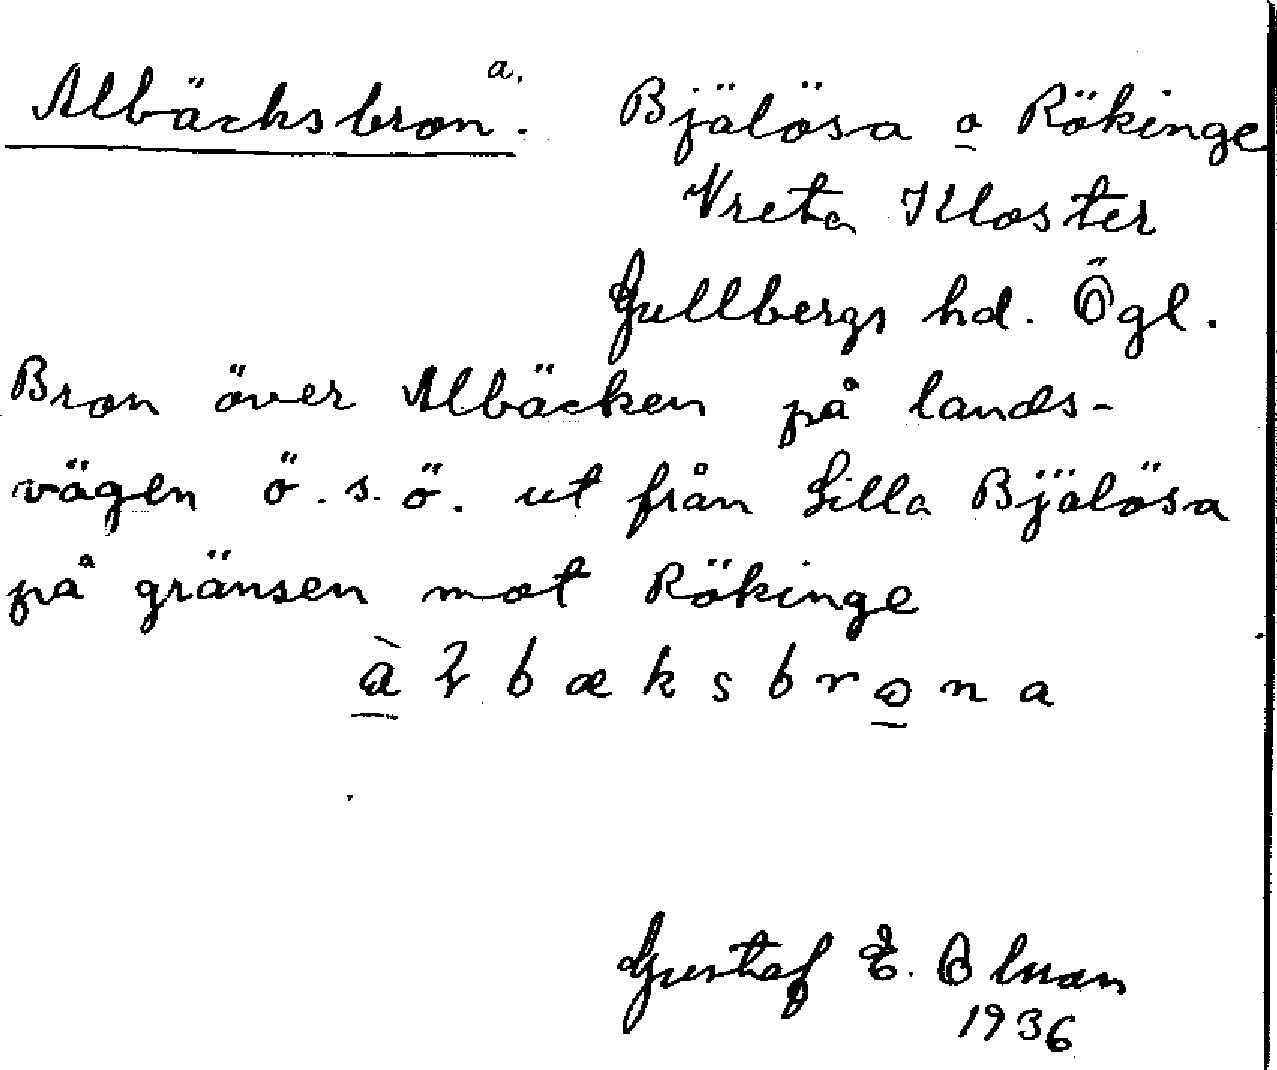 Albäcksbron. a. Bjälösa o Rökinge
Vreta Kloster
Gullbergs hd. Ögl.
Bron över Albäcken på lands-
vägen ö.s.ö. ut från Lilla Bjälösa
på gränsen mot Rökinge
bæksbrona
Gustaf E.
1936